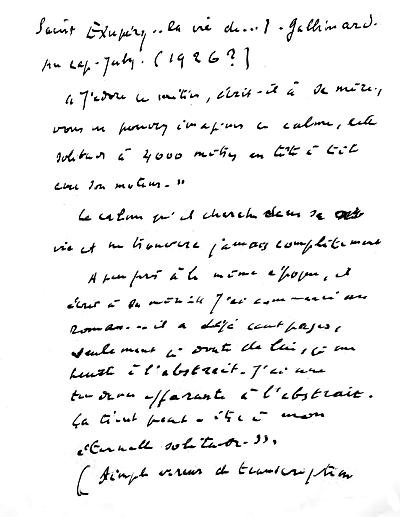 Saint Exupéry.. la vie de...). Gallimard.
au cap-Juby. (1926?]
« J'adore ce métier, écrit-il à sa mère,
vous ne pouvez imaginer ce calme, cette
solitude à 4000 mètres en tête à tête
avec son moteur. "
Le calme qu'il cherche dans sa
vie et ne trouvera jamais complètement
A peu près à la même époque, il
écrit à sa mère « J'ai commencé un
roman... il a déjà cent pages,
seulement je doute de lui, je me
heurte à l'abstrait. J'ai une
tendance effarante à l'abstrait.
Ça tient peut-être à mon
éternelle solitude. ».
( Simple erreur de transcription